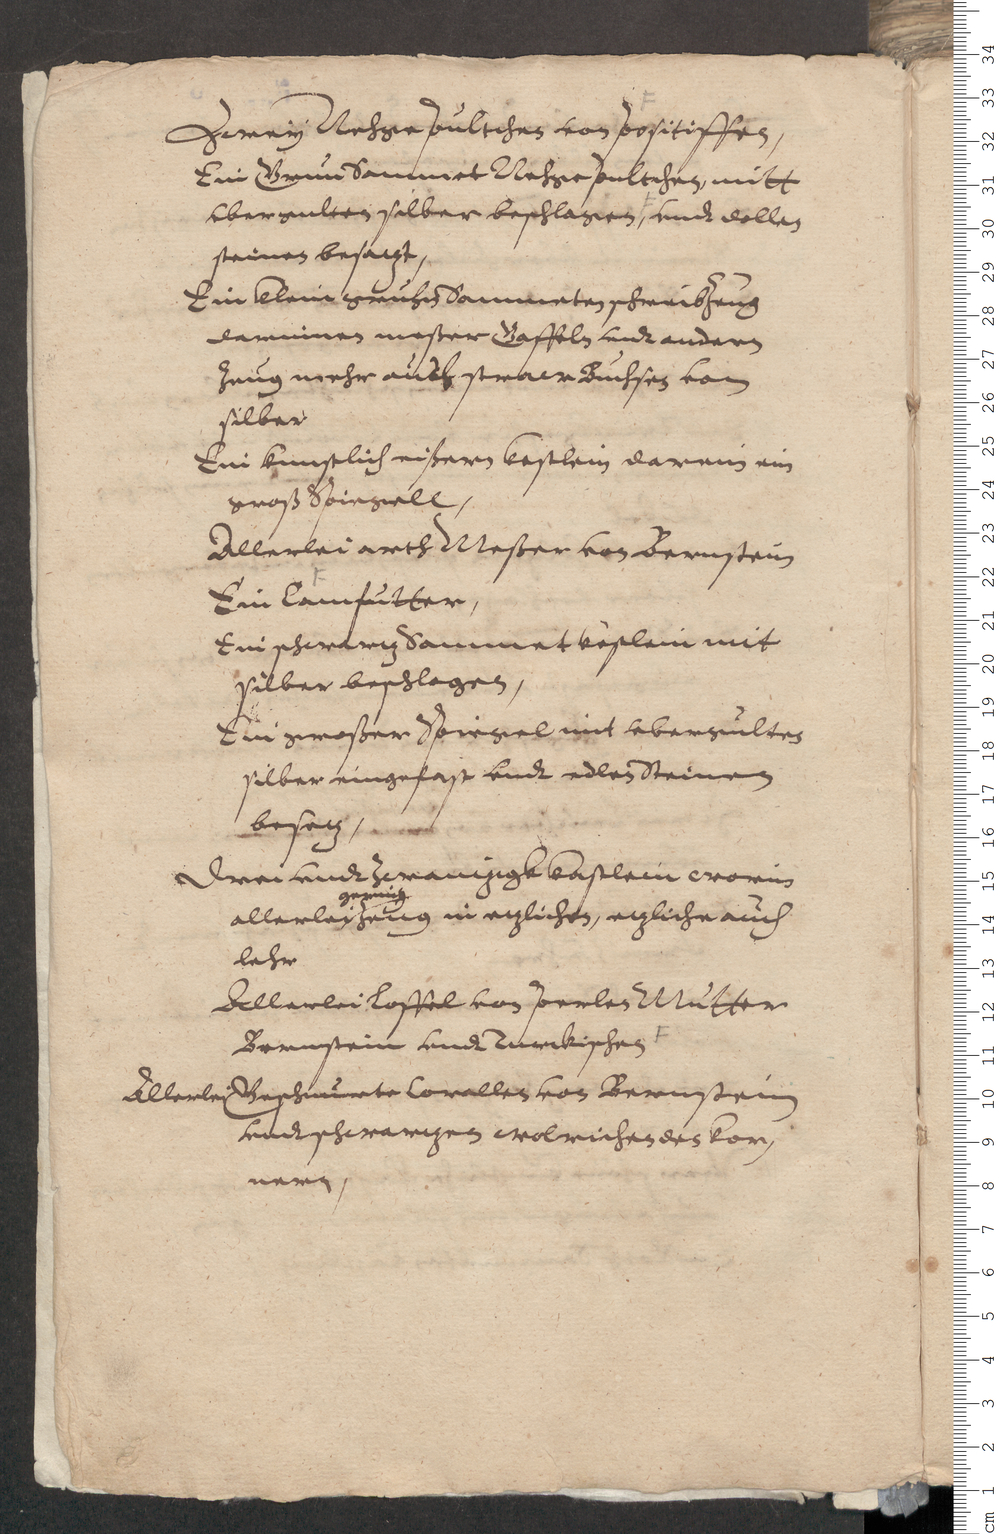 Zweiy Nehgepultches von positiffen,
Ein Brun Sammet Nehgepultchen, mitt
vbergulten silber beschlagen, vndt edlen
steinen besatzt,
Ein klein gruhn Sammeten schreibzeug
darinnen messer Gaffeln vndt andern
zeug mehr auch straew Buchses von
silber
Ein kunstlich eissern kestlein darein ein
gross Spiegell,
Allerlei arth Messer von Bernstein
Ein Camfutter,
Ein schwartz Sammet kestlein mit
silber beschlagen,
Ein grosser Spiegel mit vbergultes
silber eingefast vndt edlen Steinen
besetz,
Drei vndt zwanzigk kastlein worin
allerlei gering zeug in etzlichen, etzliche auch
lehr
Allerlei Loffel von perlen Mutter
Bernstein vndt Turckischen
Allerlei Geschnurte Corallen von Bernstein
vndt schwartzen wolrichenden kor,
nern,